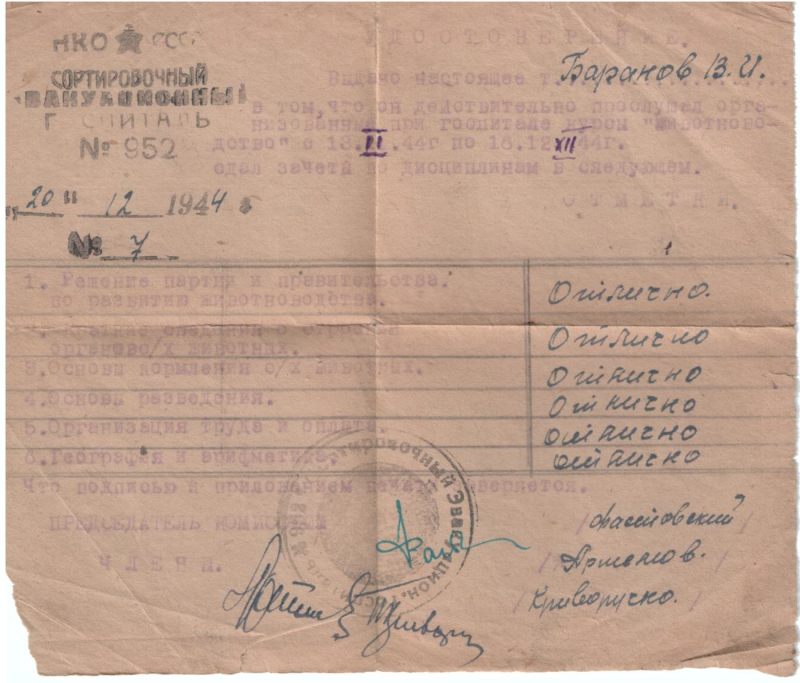 НКО СССР
СОРТИРОВОЧНЫЙ
ЭВАКУАЦИОННЫЙ
ГОСПИТАЛЬ
№ 952
„20" 12 1944
№ 7
УДОСТОВЕРЕНИЕ.
Выдано настоящее т. Баранов В.И.
в том, что он действительно прослушал орга-
низованные при госпитале курсы "животново-
дство" с 13. II. 44г по 18.12 XII 44г.
сдал зачеты по дисциплинам в следующем.
ОТМЕТКИ.
1. Решение партии и правительства.
по развитию животноводства. Отлично.
2. Краткие сведения о строении
органов с/х животных. Отлично
3. Основы кормления с/х животных. Отлично
4. Основы разведения. Отлично
5. Организация труда и оплата. отлично
6. География и арифметика. отлично
Что подписью и приложением печати заверяется.
ПРЕДСЕДАТЕЛЬ КОМИССИИ
ЧЛЕНЫ.
/Артемов.
/Криворучко./
Сортировочный Эвакуацион. Госпиталь № 952